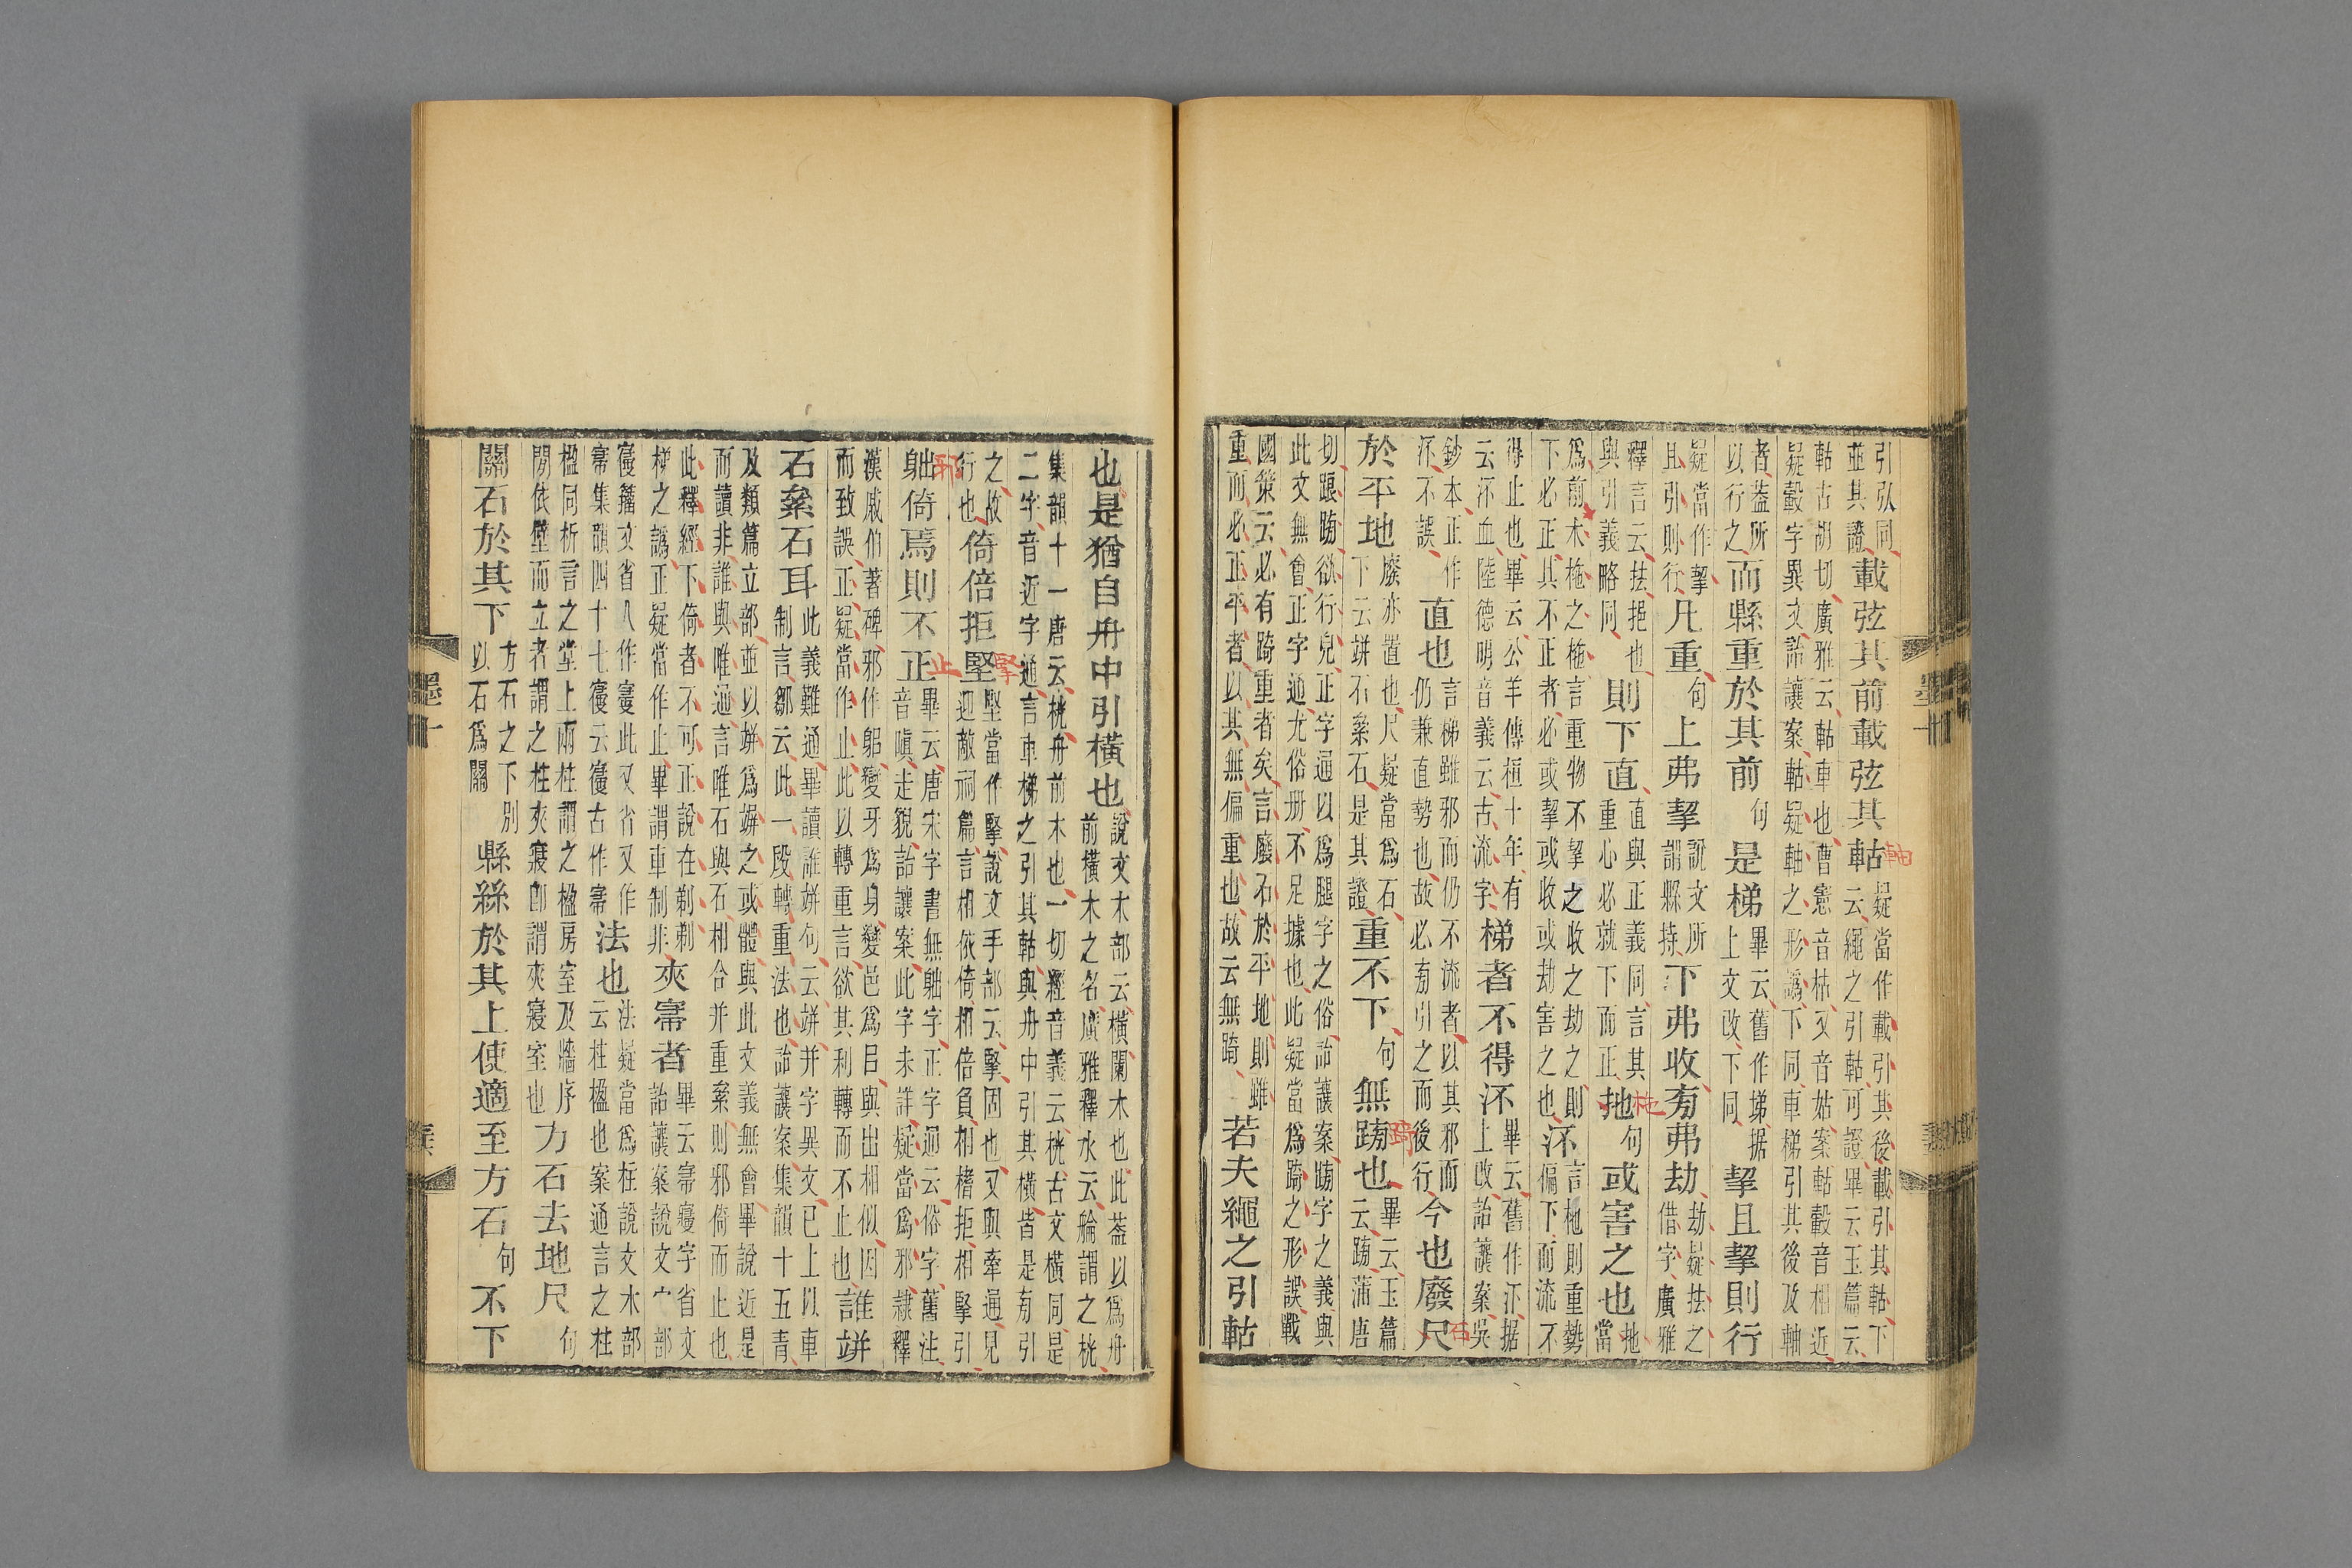 引弘同
並其證
載弦其前載弦其軲
疑當作載引其後載引其軲下
云繩之引軲可證畢云玉篇云
軲古胡切廣雅云軲車也曹憲音枯又音姑案軲轂音相近
疑轂字異文詒讓案軲疑軸之形譌下同車梯引其後及軸
者葢所
以行之
而縣重於其前
句
是梯
畢云舊作㻛据
上文改下同
挈且挈則行
疑當作挈
且引則行
凡重
句
上弗挈
說文所
謂縣持
下弗收㫄弗劫
劫疑抾之
借字廣雅
釋言云抾挹也
與引義略同
則下直
直與正義同言其
重心必就下而正
扡
句
或害之也
扡
當
爲前木柂之柂言重物不挈之收之劫之則
下必正其不正者必或挈或收或劫害之也
㳅
言柂則重勢
偏下而流不
得止也畢云公羊傳桓十年有
云㳅血陸德明音義云古流字
梯者不得㳅
畢云舊作汅据
上改詒讓案吳
鈔本正作
㳅不誤
直也
言梯雖邪而仍不流者以其邪而
仍兼直勢也故必㫄引之而後行
今也廢尺
於平地
廢亦置也尺疑當爲石
下云竮石絫石是其證
重不下
句
無䠙也
畢云玉篇
云䠙蒲唐
切踉䠙欲行皃正字通以爲腿字之俗詒讓案䠙字之義與
此文無會正字通尤俗册不足據也此疑當爲踦之形誤戰
國策云必有踦重者矣言廢石於平地則雖
重而必正平者以其無偏重也故云無踦
若夫繩之引軲
軸
柂
石
踦
墨十
也是猶自舟中引橫也
說文木部云橫闌木也此葢以爲舟
前橫木之名廣雅釋水云艈謂之桄
集韻十一唐云桄舟前木也一切經音義云桄古文橫同是
二字音近字通言車梯之引其軲與舟中引其橫皆是㫄引
之故
行也
倚倍拒堅
堅當作掔說文手部云掔固也又與牽通見
迎敵祠篇言相依倚相倍負相楮拒相掔引
䠳倚焉則不正
畢云唐宋字書無䠳字正字通云俗字舊注
音嗔走貌詒讓案此字未詳疑當爲邪隸釋
漢戚伯著碑邪作躳變牙爲身變邑爲㠯與出相似因
而致誤正疑當作止此以轉重言欲其利轉而不止也
誰竮
石絫石耳
此義難通畢讀誰竮句云竮并字異文已上以車
制言鄒云此一段轉重法也詒讓案集韻十五青
及類篇立部並以竮爲竮之或體與此文義無會畢說近是
而讀非誰與唯通言唯石與石相合并重絫則邪倚而止也
此釋經下倚者不可正說在剃剃
梯之譌正疑當作止畢謂車制非
夾㝲者
畢云㝲寑字省文
詒讓案說文宀部
寑籒文省人作寑此又省又作
㝲集韻四十七寑云寑古作㝲
法也
法疑當爲柱說文木部
云柱楹也案通言之柱
楹同析言之堂上兩柱謂之楹房室及牆序
閒依壁而立者謂之柱夾寑卽謂夾寑室也
方石去地尺
句
關石於其下
方石之下別
以石爲關
縣絲於其上使適至方石
句
不下
掔
邪
止
墨十